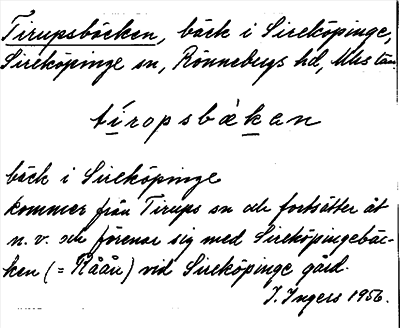 Tirupsbäcken, bäck i Sireköpinge,
Sireköpinge sn, Rönnebergs hd, Mlhs län
tíropsbäkan
bäck i Sireköpinge
kommer från Tirups sn och fortsätter åt
n.v. och förenar sig med Sireköpingebäc-
ken (= Råån) vid Sireköpinge gård.
I. Ingers 1956.